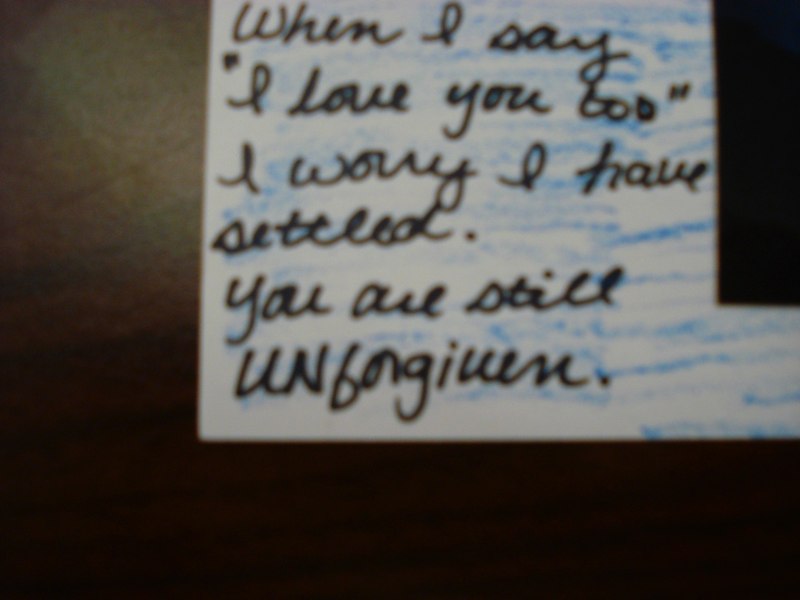 When I say
"I love you too"
I worry I have
settled.
You are still
UNforgiven.